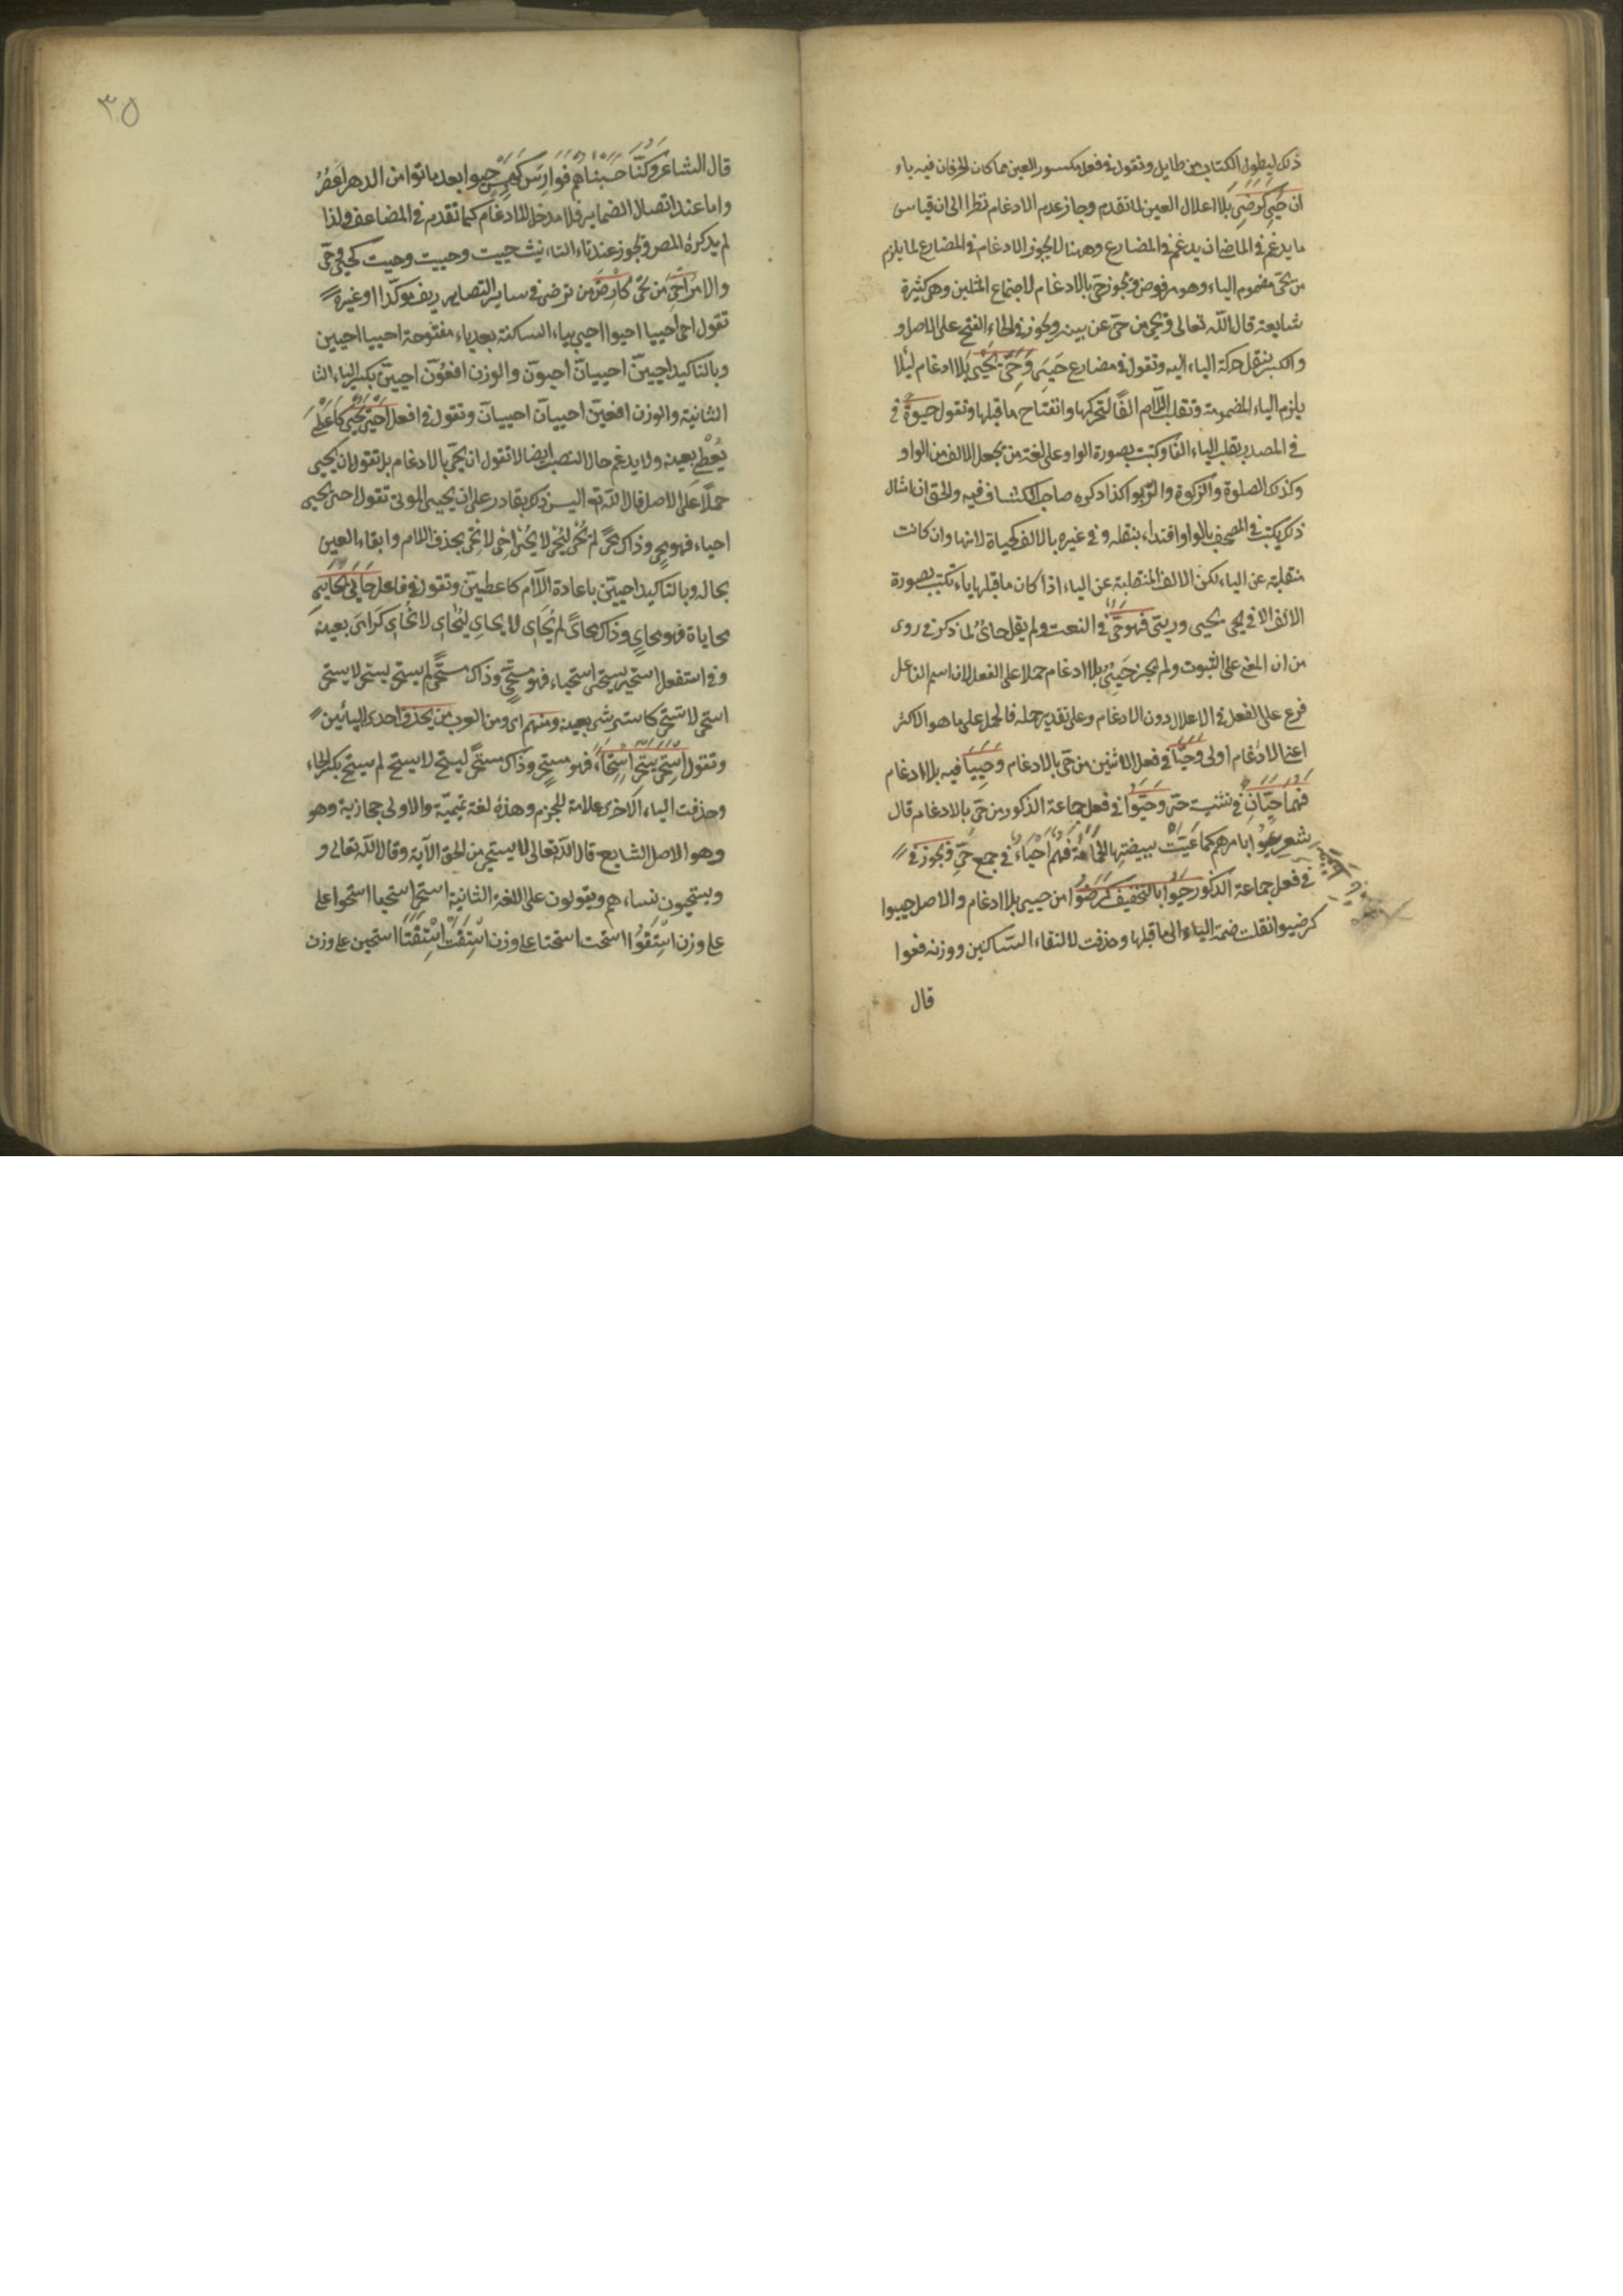 ذلك ليطول الكتاب من طايل ونقول في فعل مكسور العين مما كان الحرفان فيه ياء
ان حَيِيَ كرَضِيَ بلا اعلال العين لما تقدم وجاز عدم الادغام نظرا الى ان قياس
ما يدغم في الماضي ان يدغم في المضارع وههنا لا يجوز الادغام في المضارع لما يلزم
من يحيّ مضموم الياء وهو مرفوض ويجوز حيّ بالادغام لاجتماع المثلين وهي كثيرة
شايعة قال الله تعالى ويحيى من حيّ عن بينة ويجوز في الحاء الفتح على الاصل و
والكسر بنقل حركة الياء اليه وتقول في مضارع حَيِيَ وحَيَّ يحيى بلا ادغام ليلا
يلزم الياء المضمومة وتقلب اللام الفًا لتحركها وانفتاح ما قبلها وتقول حيوةً في
في المصدر بقلب الياء الفًا وكتبت بصورة الواو على لغة من يجعل الالف من الواو
وكذلك الصلوة والزكوة والربوا كذا ذكره صاحب الكشاف فيه والحق ان امثال
ذلك يكتب في المصحف بالواو اقتداء بنقله وفي غيره بالالف كحياة لانها وان كانت
منقلبة عن الياء لكن الالف المنقلبة عن الياء اذا كان ما قبلها ياء تكتب بصورة
الالف الا في يحيى وريىّ فهو حيّ في النعت ولم يقل حائٌ لما ذكر في روى
من ان المعنى على الثبوت ولم يجز حَيِيٌ بلا ادغام حملا على الفعل لان اسم الفاعل
فرع على الفعل في الاعلال دون الادغام وعلى تقدير حمله فالحمل على ما هو الاكثر
اعني الادغام اولى وحيّا في فعل الاثنين من حيّ بالادغام وحَيِيَا فيه بلا ادغام
فهما حيّانِ في تثنية حيّ وحَيُّوا في فعل جماعة الذكور من حيّ بالادغام قال
شعر عيّوا بامرهم كما عَيَّتْ ببيضتها الحمامة فهم احياءٌ في جمع حيٍّ ويجوز في
في فعل جماعة الذكور حَيُوا بالتخفيف كرَضُوا من حيي بلا ادغام والاصل حييوا
كرضيوا نقلت ضمة الياء الى ما قبلها وحذفت لالتقاء الساكنين ووزنه فعوا
قال
٣٥
قال الشاعر وكُنَّا حَسِبْناهم فَوارِسَ كَهْمَسٍ حيوا بعد ما توا من الدهر اعصُرُ
واما عند اتصال الضماير فلا مدخل للادغام كما تقدم في المضاعف ولذا
لم يذكره المص ويجوز عند تاء التانيث حييت وحييت وحيت كحي وحيّ
والامر احيَ من تحيى كارضَ من ترضى في ساير التصاريف مؤكّدا او غيره
تقول احيَ احييا احيوا احيي بياء الساكنة بعد ياء مفتوحة احييا احيين
وبالتاكيد احيينّ احييانّ احيونّ والوزن افعَوُنّ احيينّ بكسر الياء الثا
الثانية والوزن افعينّ احييانّ احيينانّ وتقول في افعل احيى يحيى كاعطى
يُعْطِي بعينه ولا يدغم حال النصب ايضا لا تقول ان يحيّ بالادغام بل تقول ان يحيي
حملًا على الاصل قال الله تع اليس ذلك بقادر على ان يحيي الموتى تقول احيى يحيى
احياء فهو محيٍ وذاك محيً لم يُحْيِ ليُحْيِ لا يُحْيِ احْيِ لا تُحْيِ بحذف اللام وابقاء العين
بحاله وبالتاكيد احيينّ باعادة اللام كاعطينّ وتقول في فاعل حايَى يحايي
محاياة فهو محايٍ وذاك محايًى لم يُحَايِ لا يحايِ ليُحَايِ لا تُحَايِ كرامى بعينه
وفي استفعل استحيى يستحيي استحياء فهو مستحيٍ وذاك مستحيً لم يستحي ليستحي لا يستحي
استحي لا تستحي كاسترشى بعينه ومنهم اي ومن العرب من يحذف احدى اليائين
وتقول استحَى يستحِي اسْتِحَاءً فهو مستحٍ وذاك مستحًى ليستح لا يستح لم يستح بكسر الحاء
وحذفت الياء الاخرى علامة للجزم وهذه لغة تميميّة والاولى حجازية وهو
وهو الاصل الشايع قال الله تعالى لا يستحيي من الحق الآية وقال الله تعالى و
ويستحيون نساءهم ويقولون على اللغة الثانية استحى استحيا استحوا على
على وزن اسْتَفَوُا استحت استحتا على وزن اسْتَفَتْ اسْتَفَتَا استحين على وزن